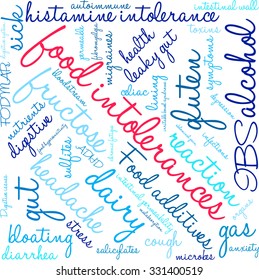 autoimmune
intestinal wall
sick
histamine intolerance
toxins
health
leaky gut
FODMAP
food intolerances
gluten
alcohol
IBS
celiac
lining
migraine
fructose
nutrients
digestive
sulfites
ADHD
reaction
Food additives
headache
dairy
gut
gas
anxiety
bloating
diarrhea
stress
salicylates
cough
microbes
www.shutterstock.com · 331400519